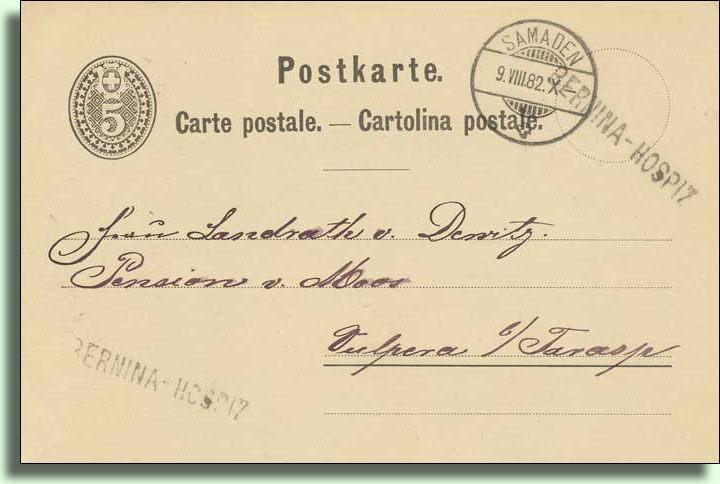 5
Postkarte.
Carte postale. — Cartolina postale.
SAMADEN
9.VIII.82.X
BERNINA-HOSPIZ
Frau Landrath v. Dewitz.
Pension v. Moos
Vulpera b/Tarasp
BERNINA-HOSPIZ